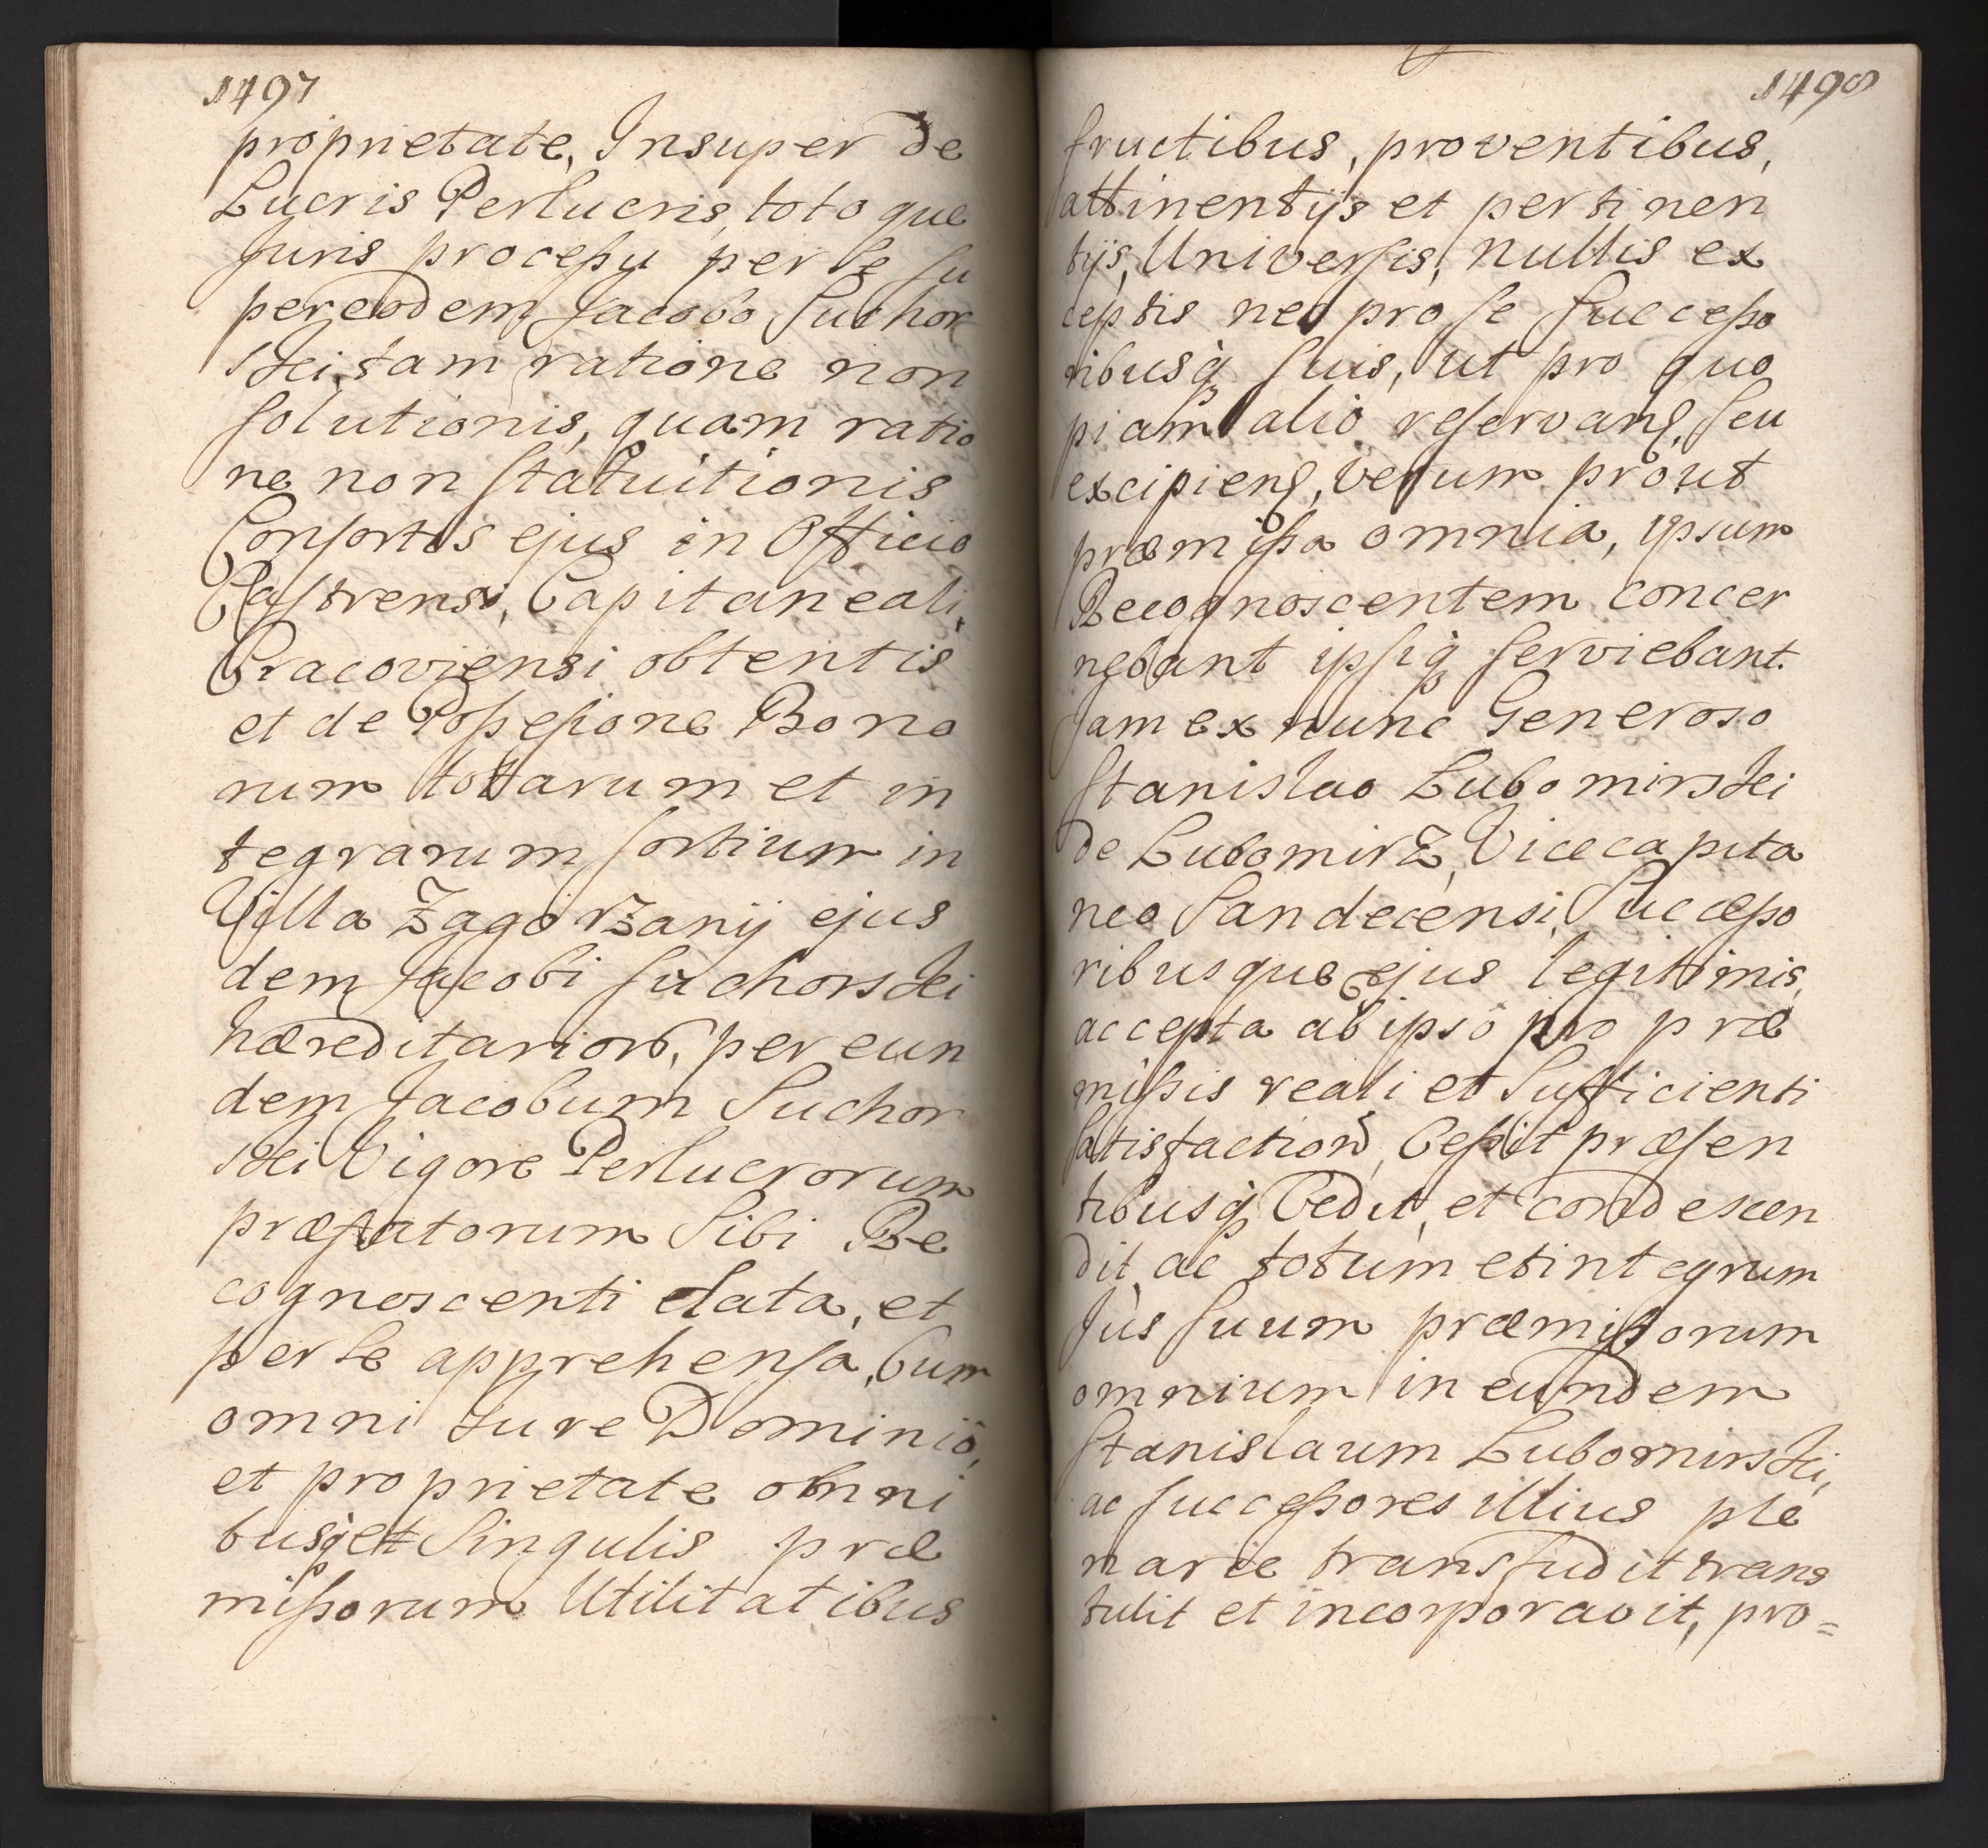 1497
proprietate, Insuper de
Lucris Perlucris, toto que
Juris proceßu per se su
per eodem Jacobo Suchor
ski, tam ratione non
solutionis, quam ratio
ne non statuitionis
Consortis ejus in Officio
Castrensi, Capitaneali,
Cracoviensi obtentis
et de Poßeßione Bono
rum totarum et in
tegrarum sortium in
Villa Zagorzanÿ ejus
dem Jacobi Suchorski
hæreditariorῦ, per eun
dem Jacobum Suchor
ski Vigore Perlucrorum
præfatorum Sibi Re
cognoscenti data, et
per se apprehensa, Cum
omni Iure Dominiô,
et proprietate omni
busq̀ et Singulis præ
mißorum Utilitatibus
1498
fructibus, proventibus,
attinentÿs et pertinen
tÿs, Universis, nullis ex
ceptis nec pro se succeßo
ribusq̀ suis, ut pro quo
piam alio reservans, seu
excipiens, verum prout
præmißa omnia, ipsum
Recognoscentem concer
nebant ipsiq̀ serviebant.
Jam ex nunc Generoso
Stanislao Lubomirski
de Lubomirz, Vicecapita
neo Sandecensi, Succeßo
ribusque ejus legitimis,
accepta ab ipsô pro præ
mißis reali et Sufficienti
satisfactionè, Ceßit præsen
tibusq̀ Cedit, et condescen
dit ac totum et integrum
Jus suum præmißorum
omnium in eundem
Stanislaum Lubomirski,
ac succeßores illius ple
narie transfudit trans
tulit et incorporavit, pro=